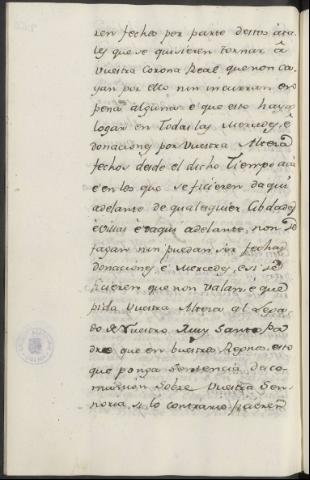 ren fechos por parte destos âta
les que se quisieren tornar â
Vuestra Corona Real que non ca
yan por ello nin incurran en
pena alguna: e que esto haya
logar en todas las Mercedes, e
donaciones por Vuestra Altera
fechos desde el dicho tiempo acâ
e en los que se ficieren daqui
adelante de qualesquier Cibdades
e Villas e daqui adelante, non se
fagan nin puedan ser fechas
donaciones e Mercedes, e si se
ficieren que non valan: e que
pida Vuestra Altera al Lega
do de Nuestro Muy Santo pa
dre que en vuestros Regnos estâ
que ponga Sentencia dExco
munion sobre Vuestra Sen
noria, si lo contrario ficieren